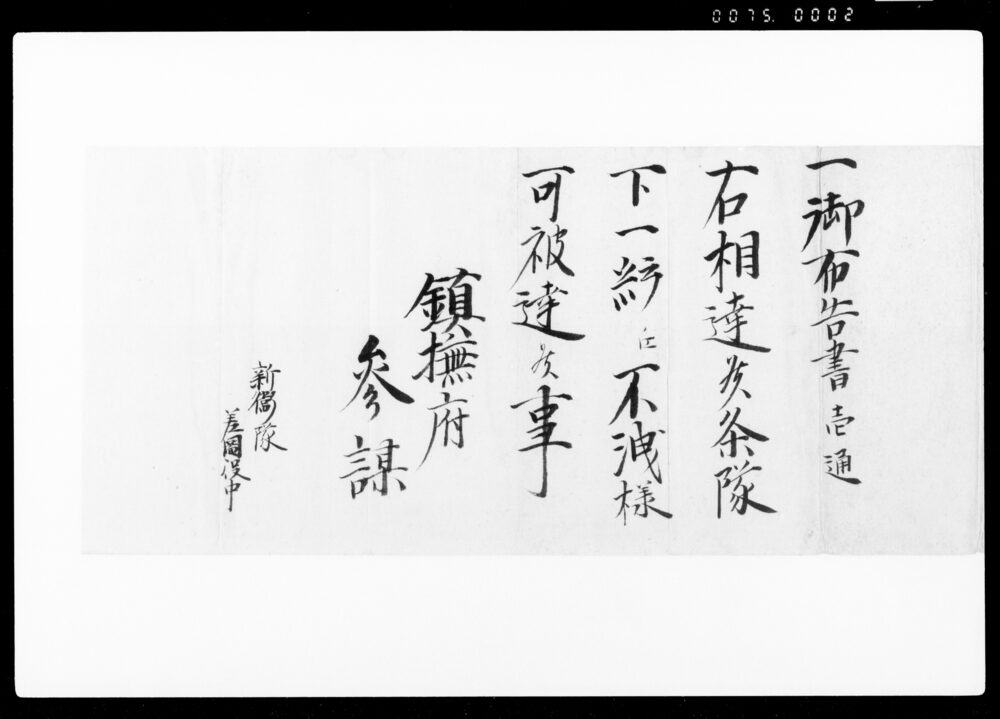 0075. 0002
一御布告書壱通
右相達候条隊
下一統江不洩様
可被達候事
鎮撫府
参謀
新衛隊
差圖役中